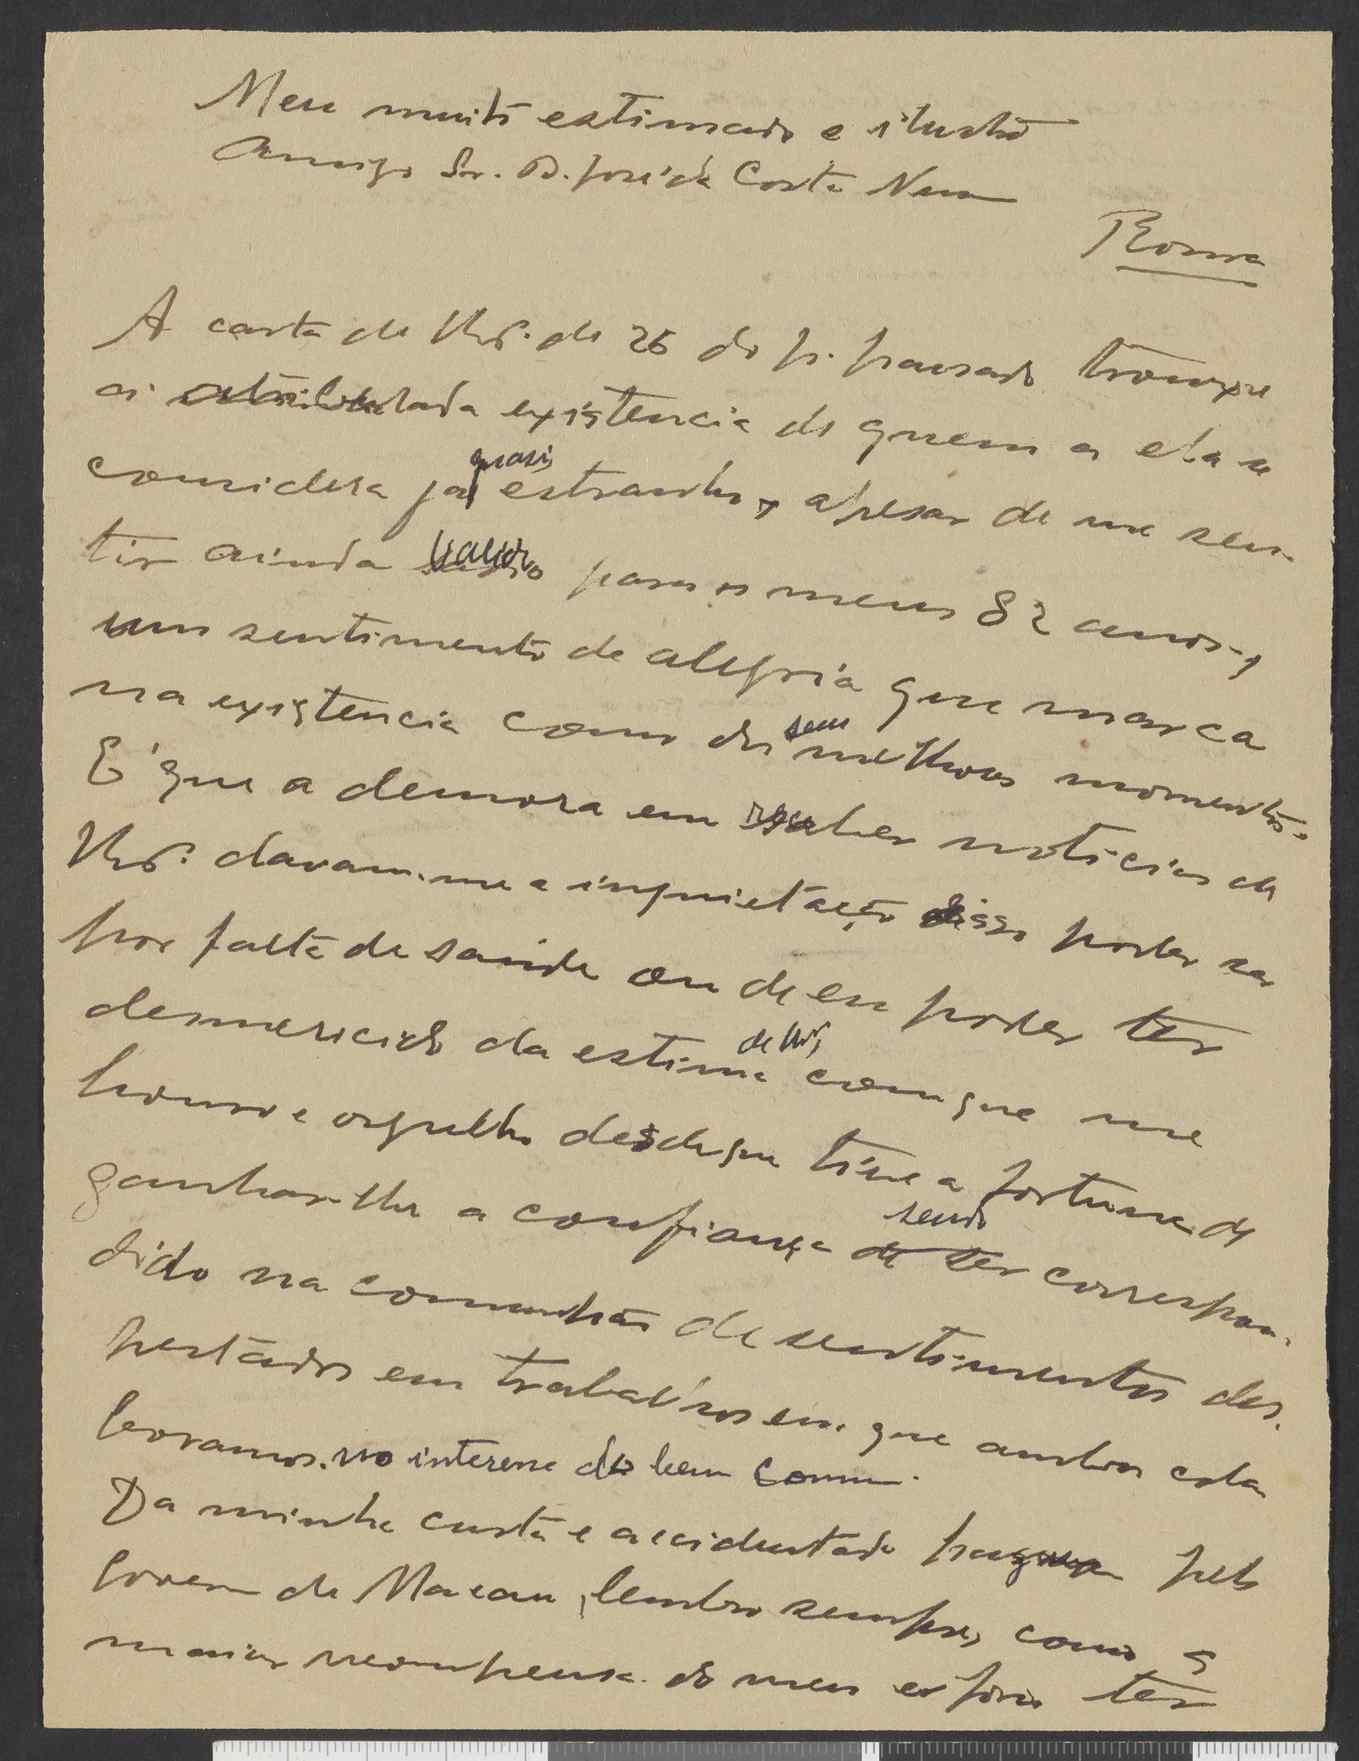 Meu muito estimado e ilustre
Amigo Sr. D. José da Costa Nunes
Roma
A carta de V. de 26 do p. passado trouxe
a existencia de quem a ela se
considera já quasi estranho, apesar de me sen-
tir ainda para os meus 82 anos,
um sentimento de alegria que marca
na existencia como dos seus melhores momentos.
É que a demora em receber noticias de
davam-me a inquietação disso poder ser
por falta de saúde ou de eu poder ter
desmerecido da estima de com que me
honro e orgulho desde que tive a fortuna de
ganhar-lhe a confiança sendo correspon-
dido na comunhão de sentimentos des-
pertados em trabalhos em que ambos cola-
boramos no interesse do bem comum.
Da minha curta e accidentada pelo
Governo de Macau, lembro sempre, como a
maior recompensa do meu esforço ter